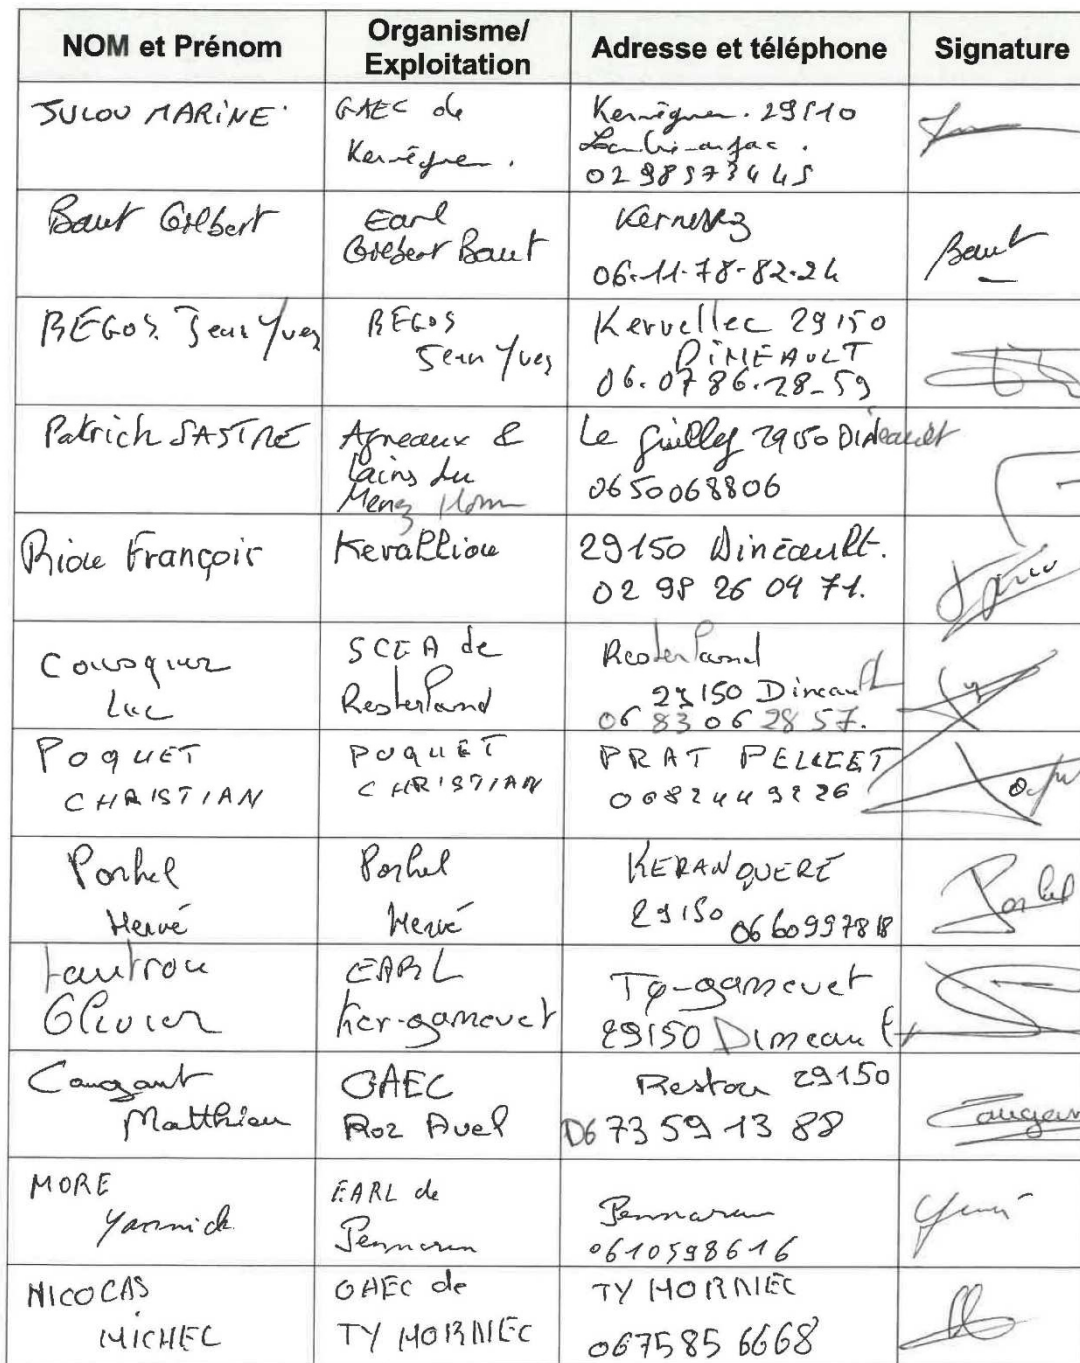 NOM et Prénom
Organisme/
Exploitation
Adresse et téléphone
Signature
JULOU MARINE
GAEC de
Kervéguen.
Kervéguen. 29510
02 98573445
Baut Gilbert
Earl
Gilbert Baut
06.11.78.82.24
Baut
BEGOS Jean Yves
BEGOS
Jean Yves
Kervellec 29150
DINEAULT
06.07 86.28_59
Patrick SASTRE
Agneaux &
Lains du
Menez Hom
Le Guilly 29150 Dinéault
0650068806
Riou François
Keralliou
29150 Dinéault.
02 98 26 04 71.
Luc
SCEA de
29150 Dineault
06 83 06 28 57.
POQUET
CHRISTIAN
POQUET
CHRISTIAN
PRAT
0682449226
Porhel
Hervé
Porhel
Hervé
KERANQUERE
29150 0660997818
Porhel
Lautrou
Olivier
EARL
Ker-gamevet
Ty-gamevet
29150 Dineault
Caugant
Matthieu
GAEC
Roz Avel
Restou 29150
06 73 59 13 88
Caugant
MORE
Yannick
EARL de
Pennarun
Pennarun
0610598616
NICOLAS
MICHEL
GAEC de
TY HORNIEC
TY HORNIEC
067585 6668